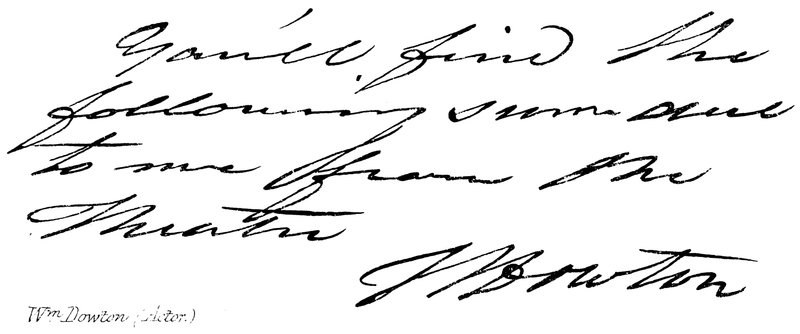 You'll find the
following sums due
to me from the
Theatre
W Dowton
Wm Dowton (Actor.)